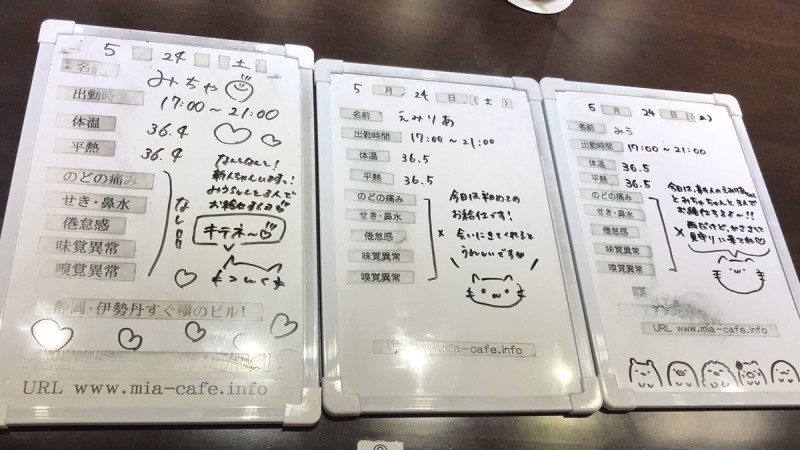 5 月 24 日 土
名
みちゃ
出勤時間 17:00～21:00
体温 36.4
平熱 36.4
のどの痛み
せき・鼻水
倦怠感
味覚異常
嗅覚異常
なし
なんとなんと!
新人ちゃんいます♪
みうちゃんと3人で
お給仕するヨ
キテネ～♡
静岡・伊勢丹すぐ横のビル!
URL www.mia-cafe.info
5 月 24 日 (土)
名前 えみりあ
出勤時間 17:00～21:00
体温 36.5
平熱 36.5
のどの痛み
せき・鼻水
倦怠感
味覚異常
嗅覚異常
×
今日は初めての
お給仕です!
会いにきてくれると
うれしいです♥
URL www.mia-cafe.info
5 月 24 日 (土)
名前 みう
出勤時間 17:00～21:00
体温 36.5
平熱 36.5
のどの痛み
せき・鼻水
倦怠感
味覚異常
嗅覚異常
×
今日は、新人のえみりあちゃん
とみちゃちゃんと3人で
お給仕するよ～!!
雨だけど、かささして
見守りに来てね♡
URL www.mia-cafe.info